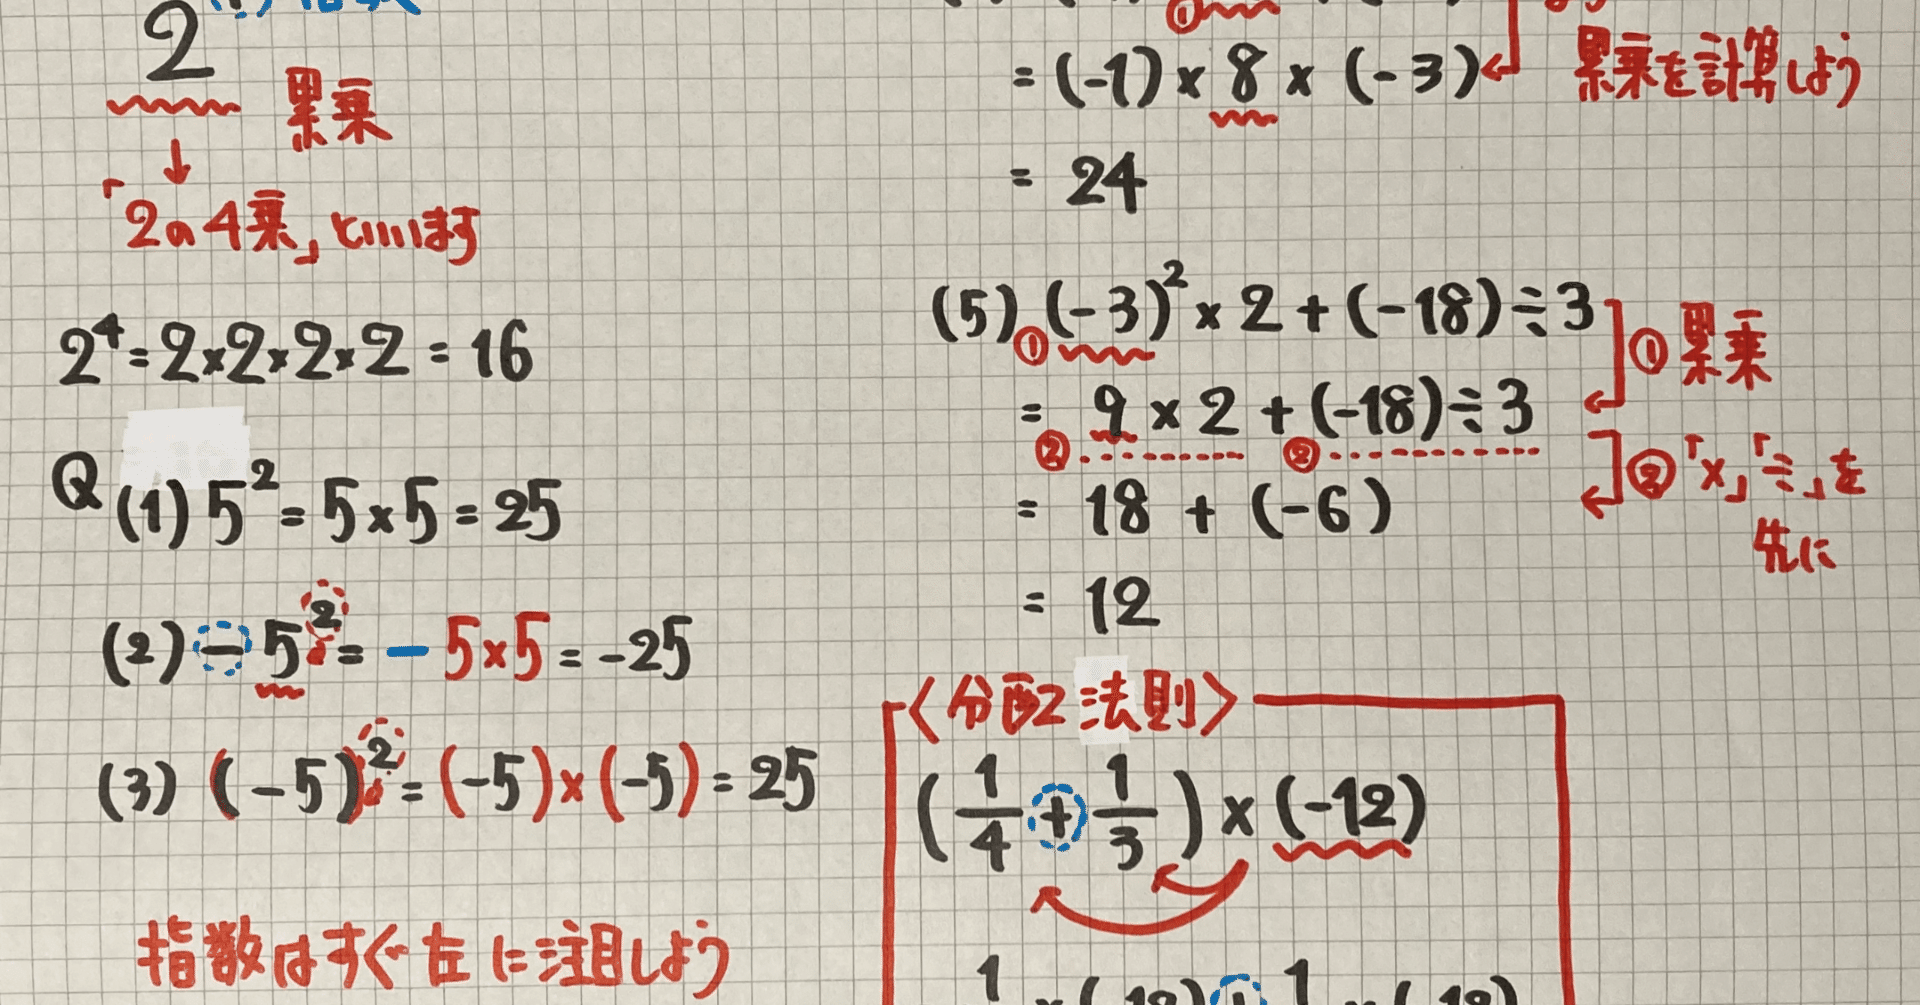 指数
2
累乗
「2の4乗」といいます
2⁴=2×2×2×2=16
Q
(1) 5²=5×5=25
(2) -5²=-5×5=-25
(3) (-5)²=(-5)×(-5)=25
指数はすぐ左に注目しよう
①
=(-1)×8×(-3)
累乗を計算しよう
=24
(5) (-3)²×2+(-18)÷3
① ①累乗
=9×2+(-18)÷3
② ② ②「×」「÷」を
先に
=18+(-6)
=12
〈分配法則〉
(1/4+1/3)×(-12)